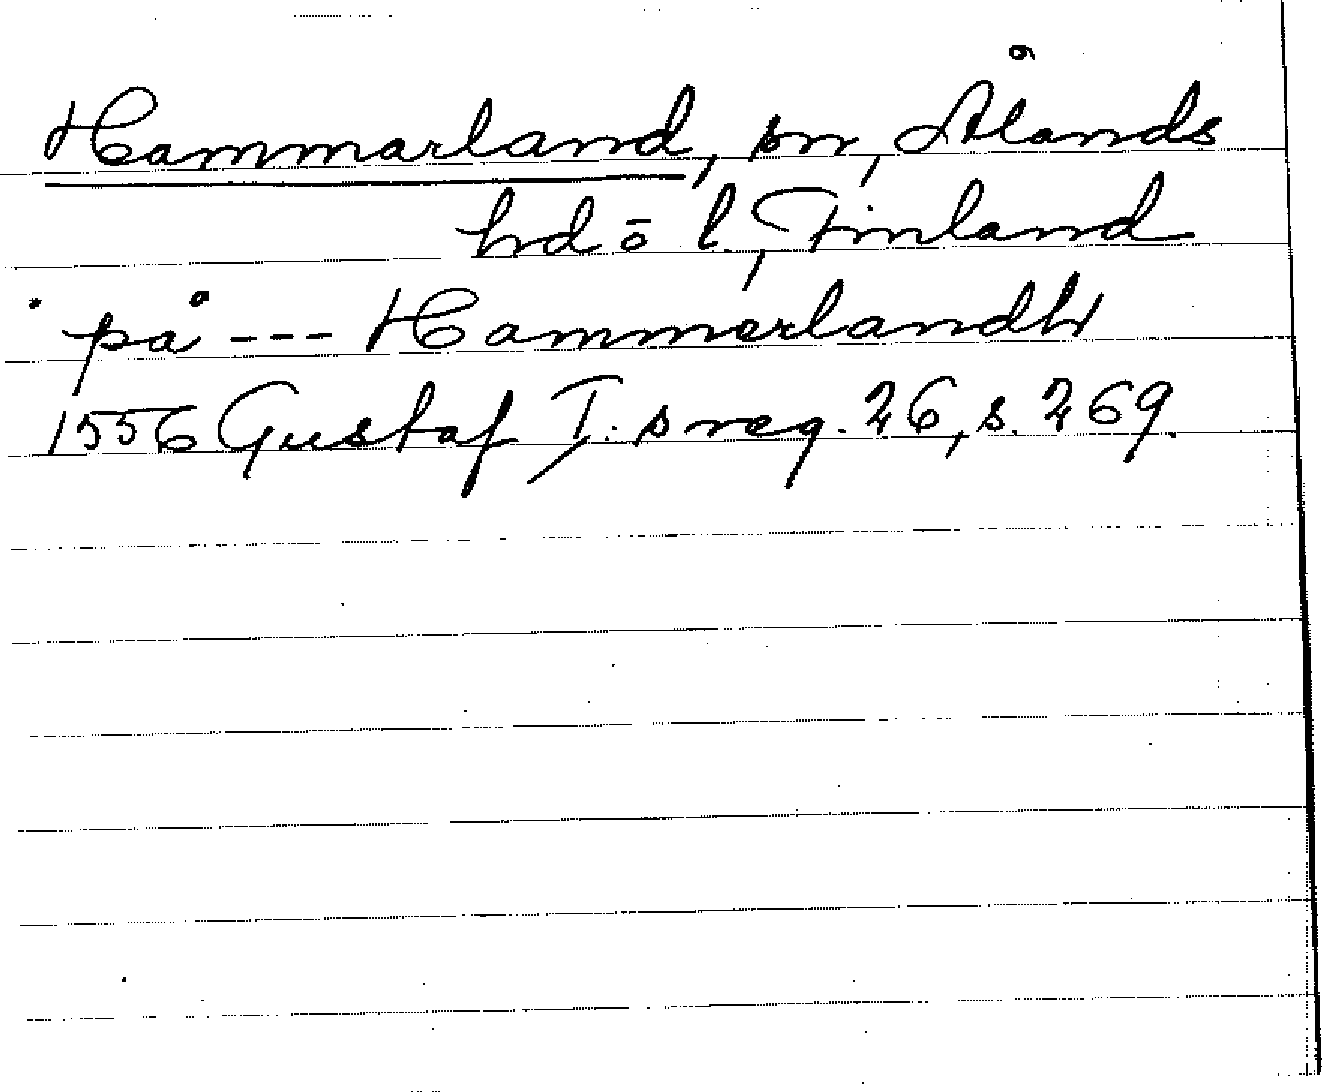 Hammarland, sn, Ålands
hd o l., Finland
på --- Hammerlandh
1556 Gustaf I:s reg. 26, s. 269